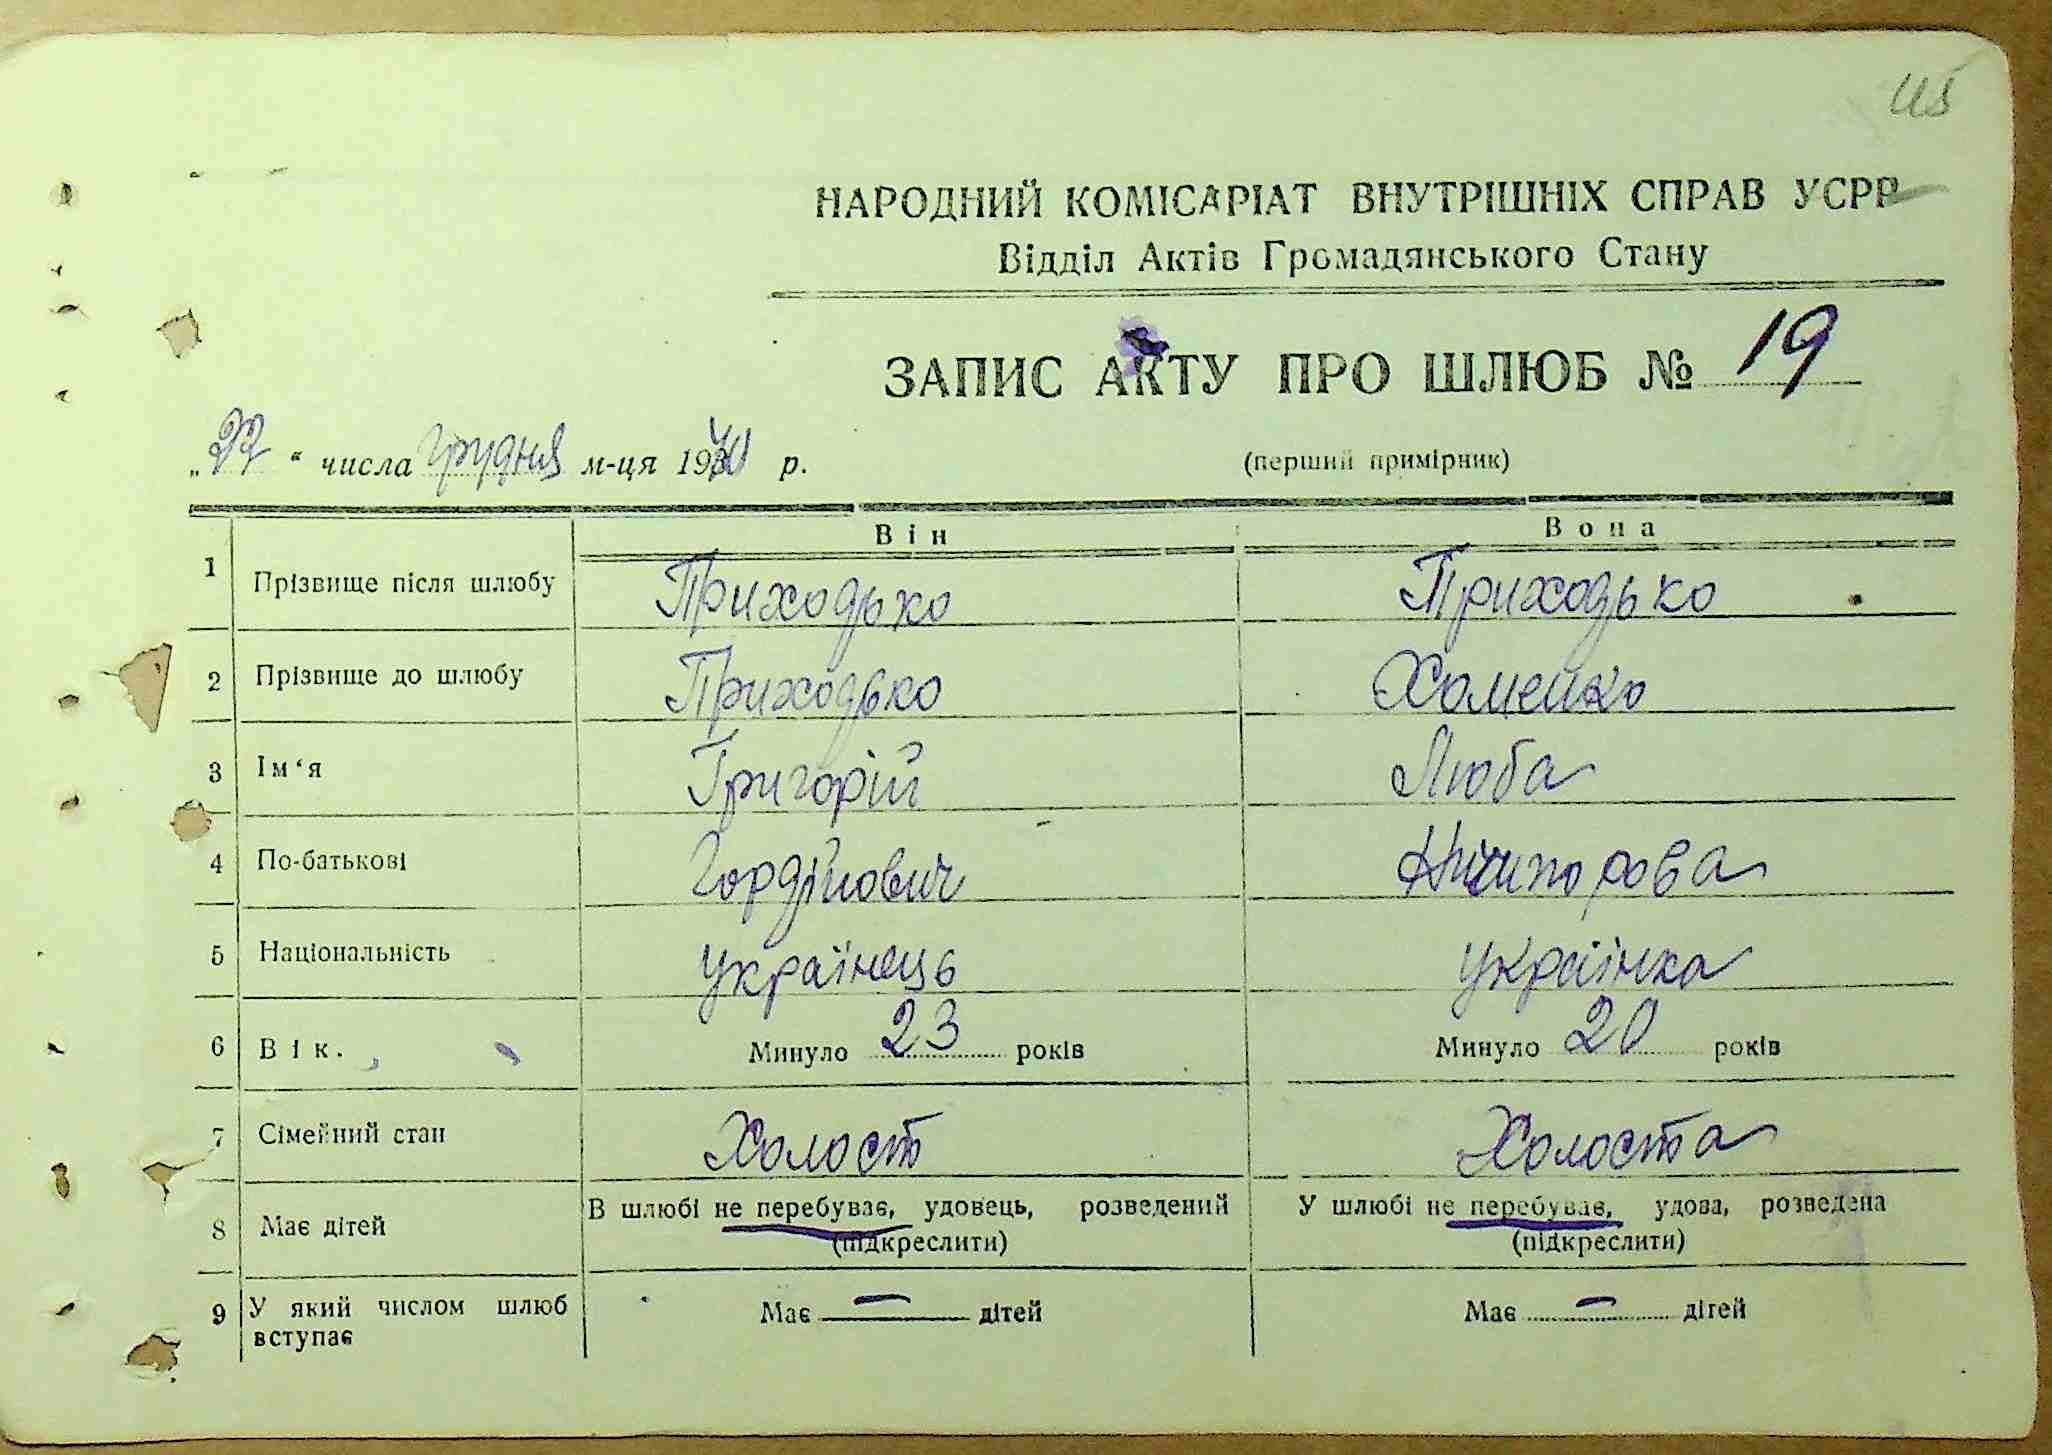 НАРОДНИЙ КОМІСАРІАТ ВНУТРІШНІХ СПРАВ УСРР
Відділ Актів Громадянського Стану
ЗАПИС АКТУ ПРО ШЛЮБ № 19
„22“ числа грудня м-ця 1940 р. (перший примірник)
Він Вона
1 Прізвище після шлюбу Приходько Приходько
2 Прізвище до шлюбу Приходько Хоменко
3 Ім‘я Григорій Люба
4 По-батькові Гордійович
5 Національність українець українка
6 Вік. Минуло 23 років Минуло 20 років
7 Сімейний стан Холост Холоста
8 Має дітей В шлюбі не перебуває, удовець, розведений У шлюбі не перебуває, удова, розведена
(підкреслити) (підкреслити)
9 У який числом шлюб вступає Має — дітей Має — дітей